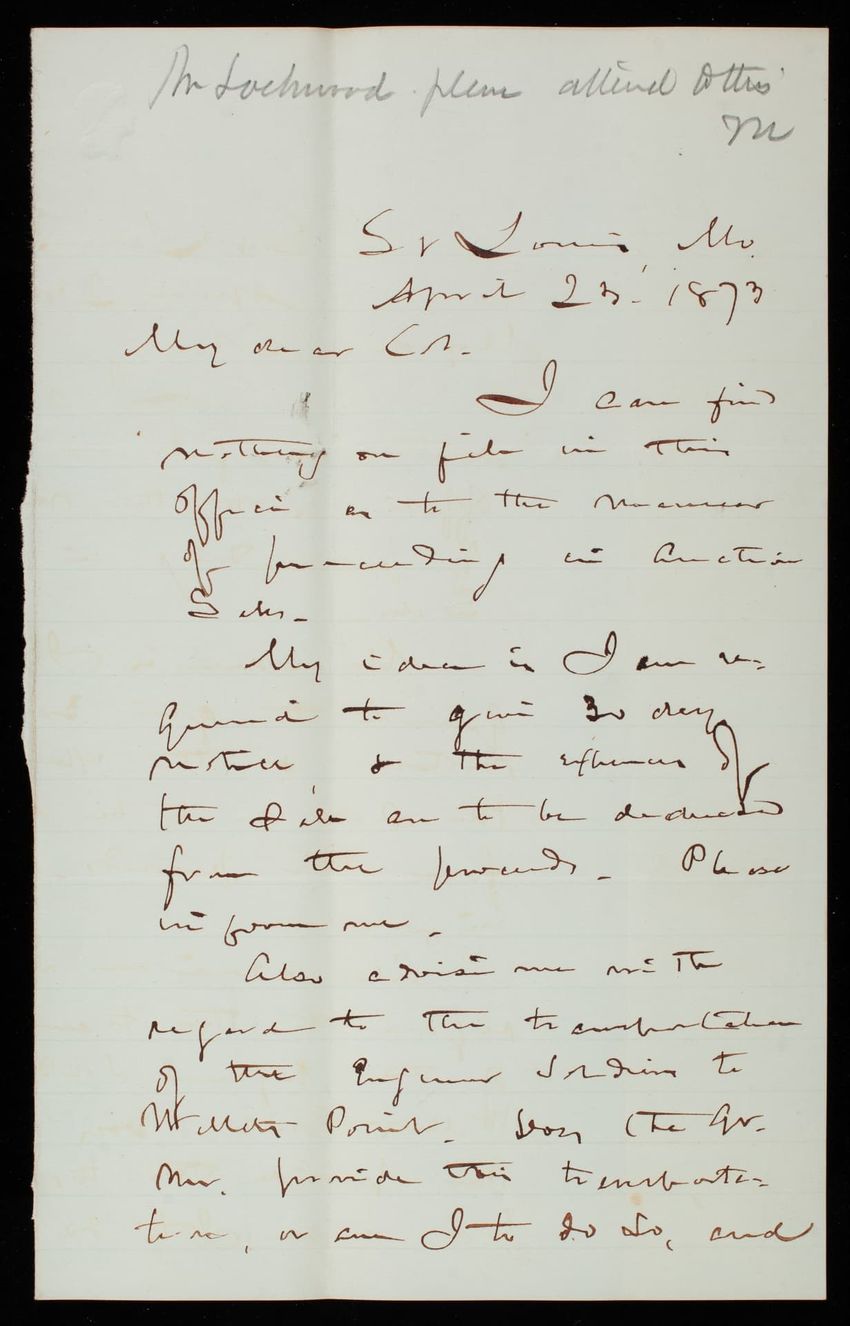 Mr Lockwood please attend to this
M
St Louis, Mo.
April 23. 1873
My dear Col.
I can find
nothing on file in this
office as to the manner
of proceeding in Auction
Sales.
My idea is I am re-
quired to give 30 days
notice & the expenses of
the Sale are to be deducted
from the proceeds. Please
inform me.
Also advise me with
regard to the transportation
of the Engineer Soldiers to
Willets Point. Does the Qr.
Mr. provide this transporta-
tion, or am I to do so, and